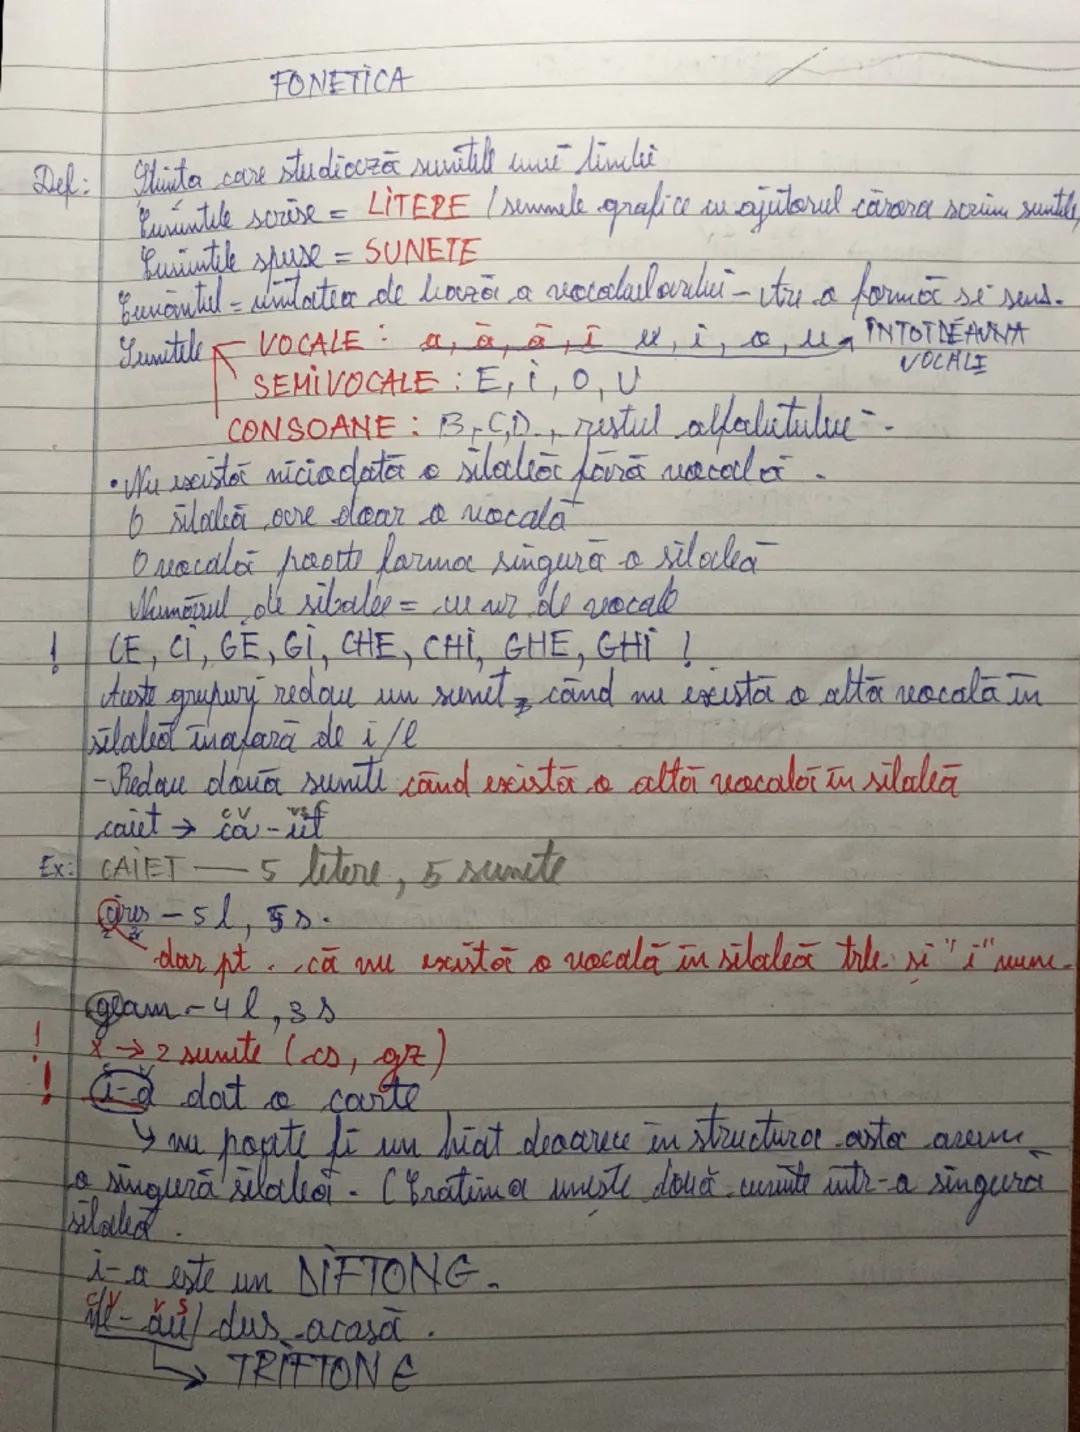 FONETICA
Def: Știința care studiază sunetele unei limbi
Cuvintele scrise = LITERE (semnele grafice cu ajutorul cărora scriem sunetele)
Cuvintele spuse = SUNETE
Cuvântul = unitatea de bază a vocabularului - Are o formă și sens.
Sunetele VOCALE: a, ă, â, î e, i, o, u ÎNTOTDEAUNA
VOCALE
SEMIVOCALE: E, i, O, U
CONSOANE: B, C, D.., restul alfabetului.
• Nu există niciodată o silabă fără vocală.
O silabă are doar o vocală
O vocală poate forma singură o silabă
Numărul de silabe = cu nr de vocale
! CE, CI, GE, GI, CHE, CHI, GHE, GHI !
Aceste grupuri redau un sunet, când nu există o altă vocală în
silabă înafară de i/e
- Redau două sunete când există o altă vocală în silabă
caiet → ca-iet
Ex: CAIET — 5 litere, 5 sunete
- 5 l, 5 s.
dar pt. că nu există o vocală în silabă și "i" num.
geam - 4 l, 3 s
! x → 2 sunete (cs, gz)
! i-a dat o carte
↳ nu poate fi un hiat deoarece în structura asta avem
o singură silabă. (Cratima unește două cuvinte într-o singură
silabă.
i-a este un DIFTONG.
c v v s
au dus acasă.
→ TRIFTONG